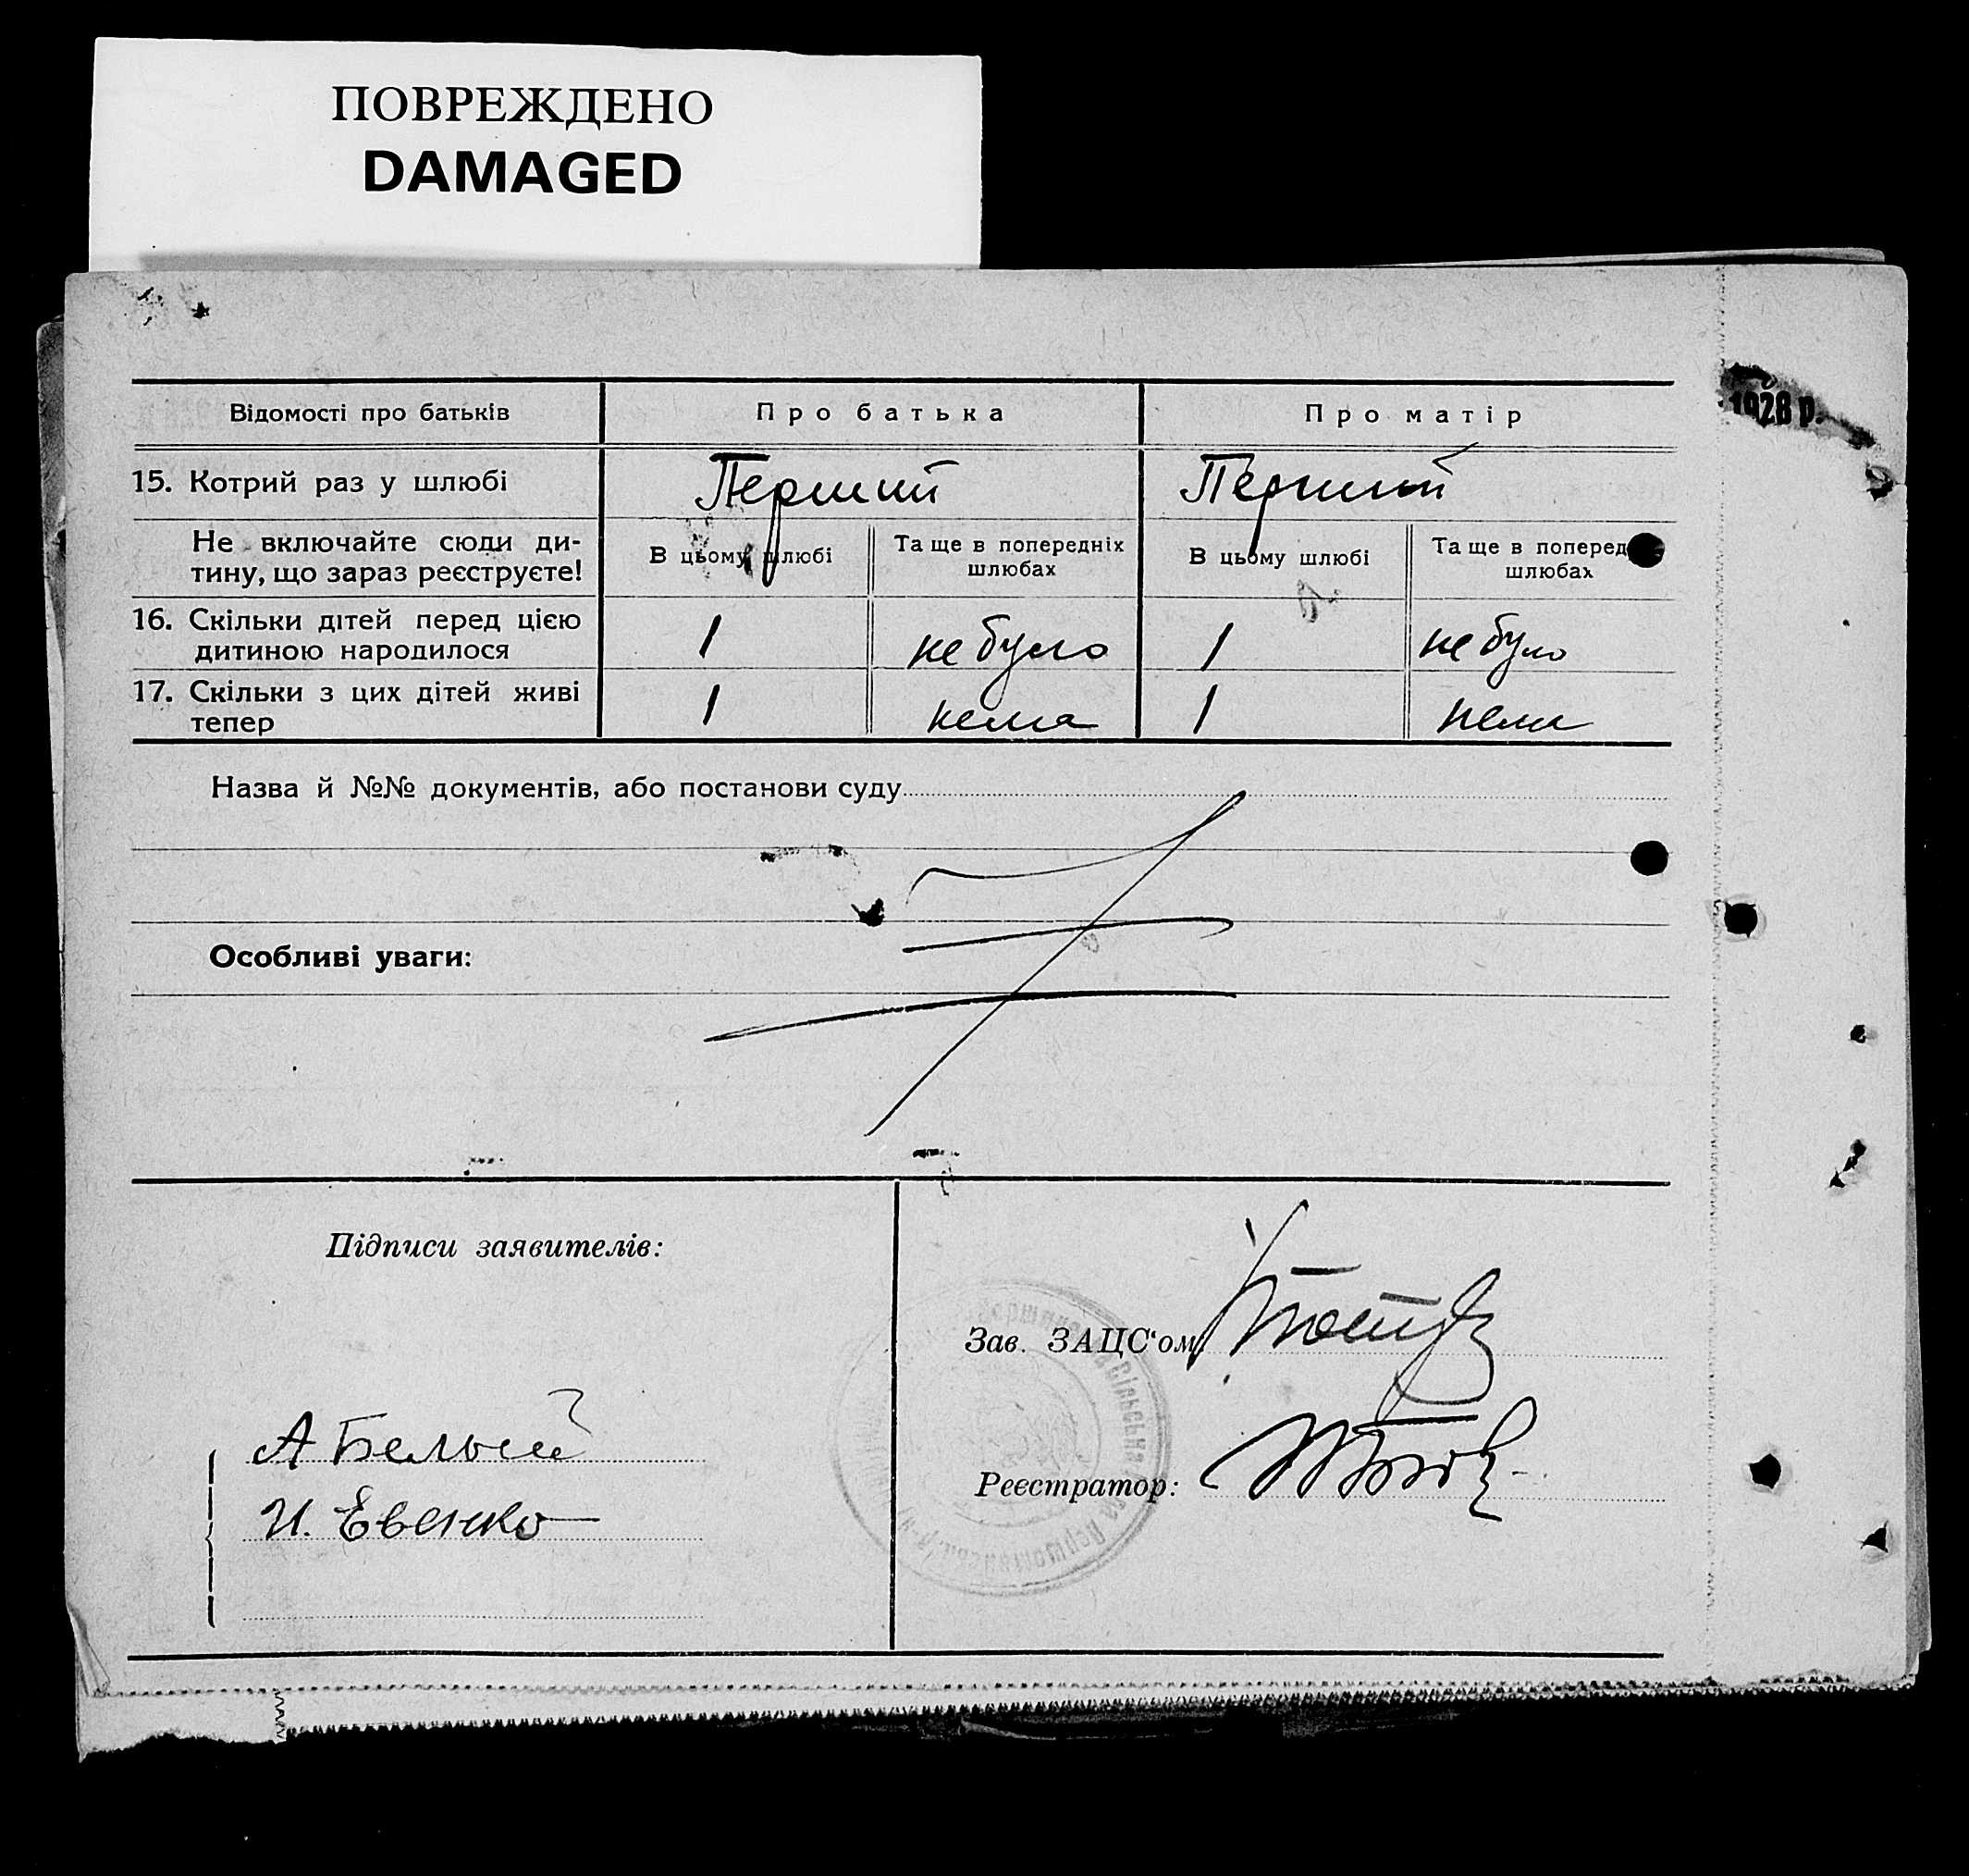 ПОВРЕЖДЕНО
DAMAGED
1928 р.
Відомості про батьків Про батька Про матір
15. Котрий раз у шлюбі Перший Перший
Не включайте сюди ди-
тину, що зараз реєструєте!
В цьому шлюбі Та ще в попередніх шлюбах В цьому шлюбі Та ще в поперед шлюбах
16. Скільки дітей перед цією
дитиною народилося 1 не було 1 не було
17. Скільки з цих дітей живі
тепер 1 нема 1 нема
Назва й №№ документів, або постанови суду
Особливі уваги:
Підписи заявителів:
А Белый
И. Евенко
Зав. ЗАЦС‘ом
Реєстратор: